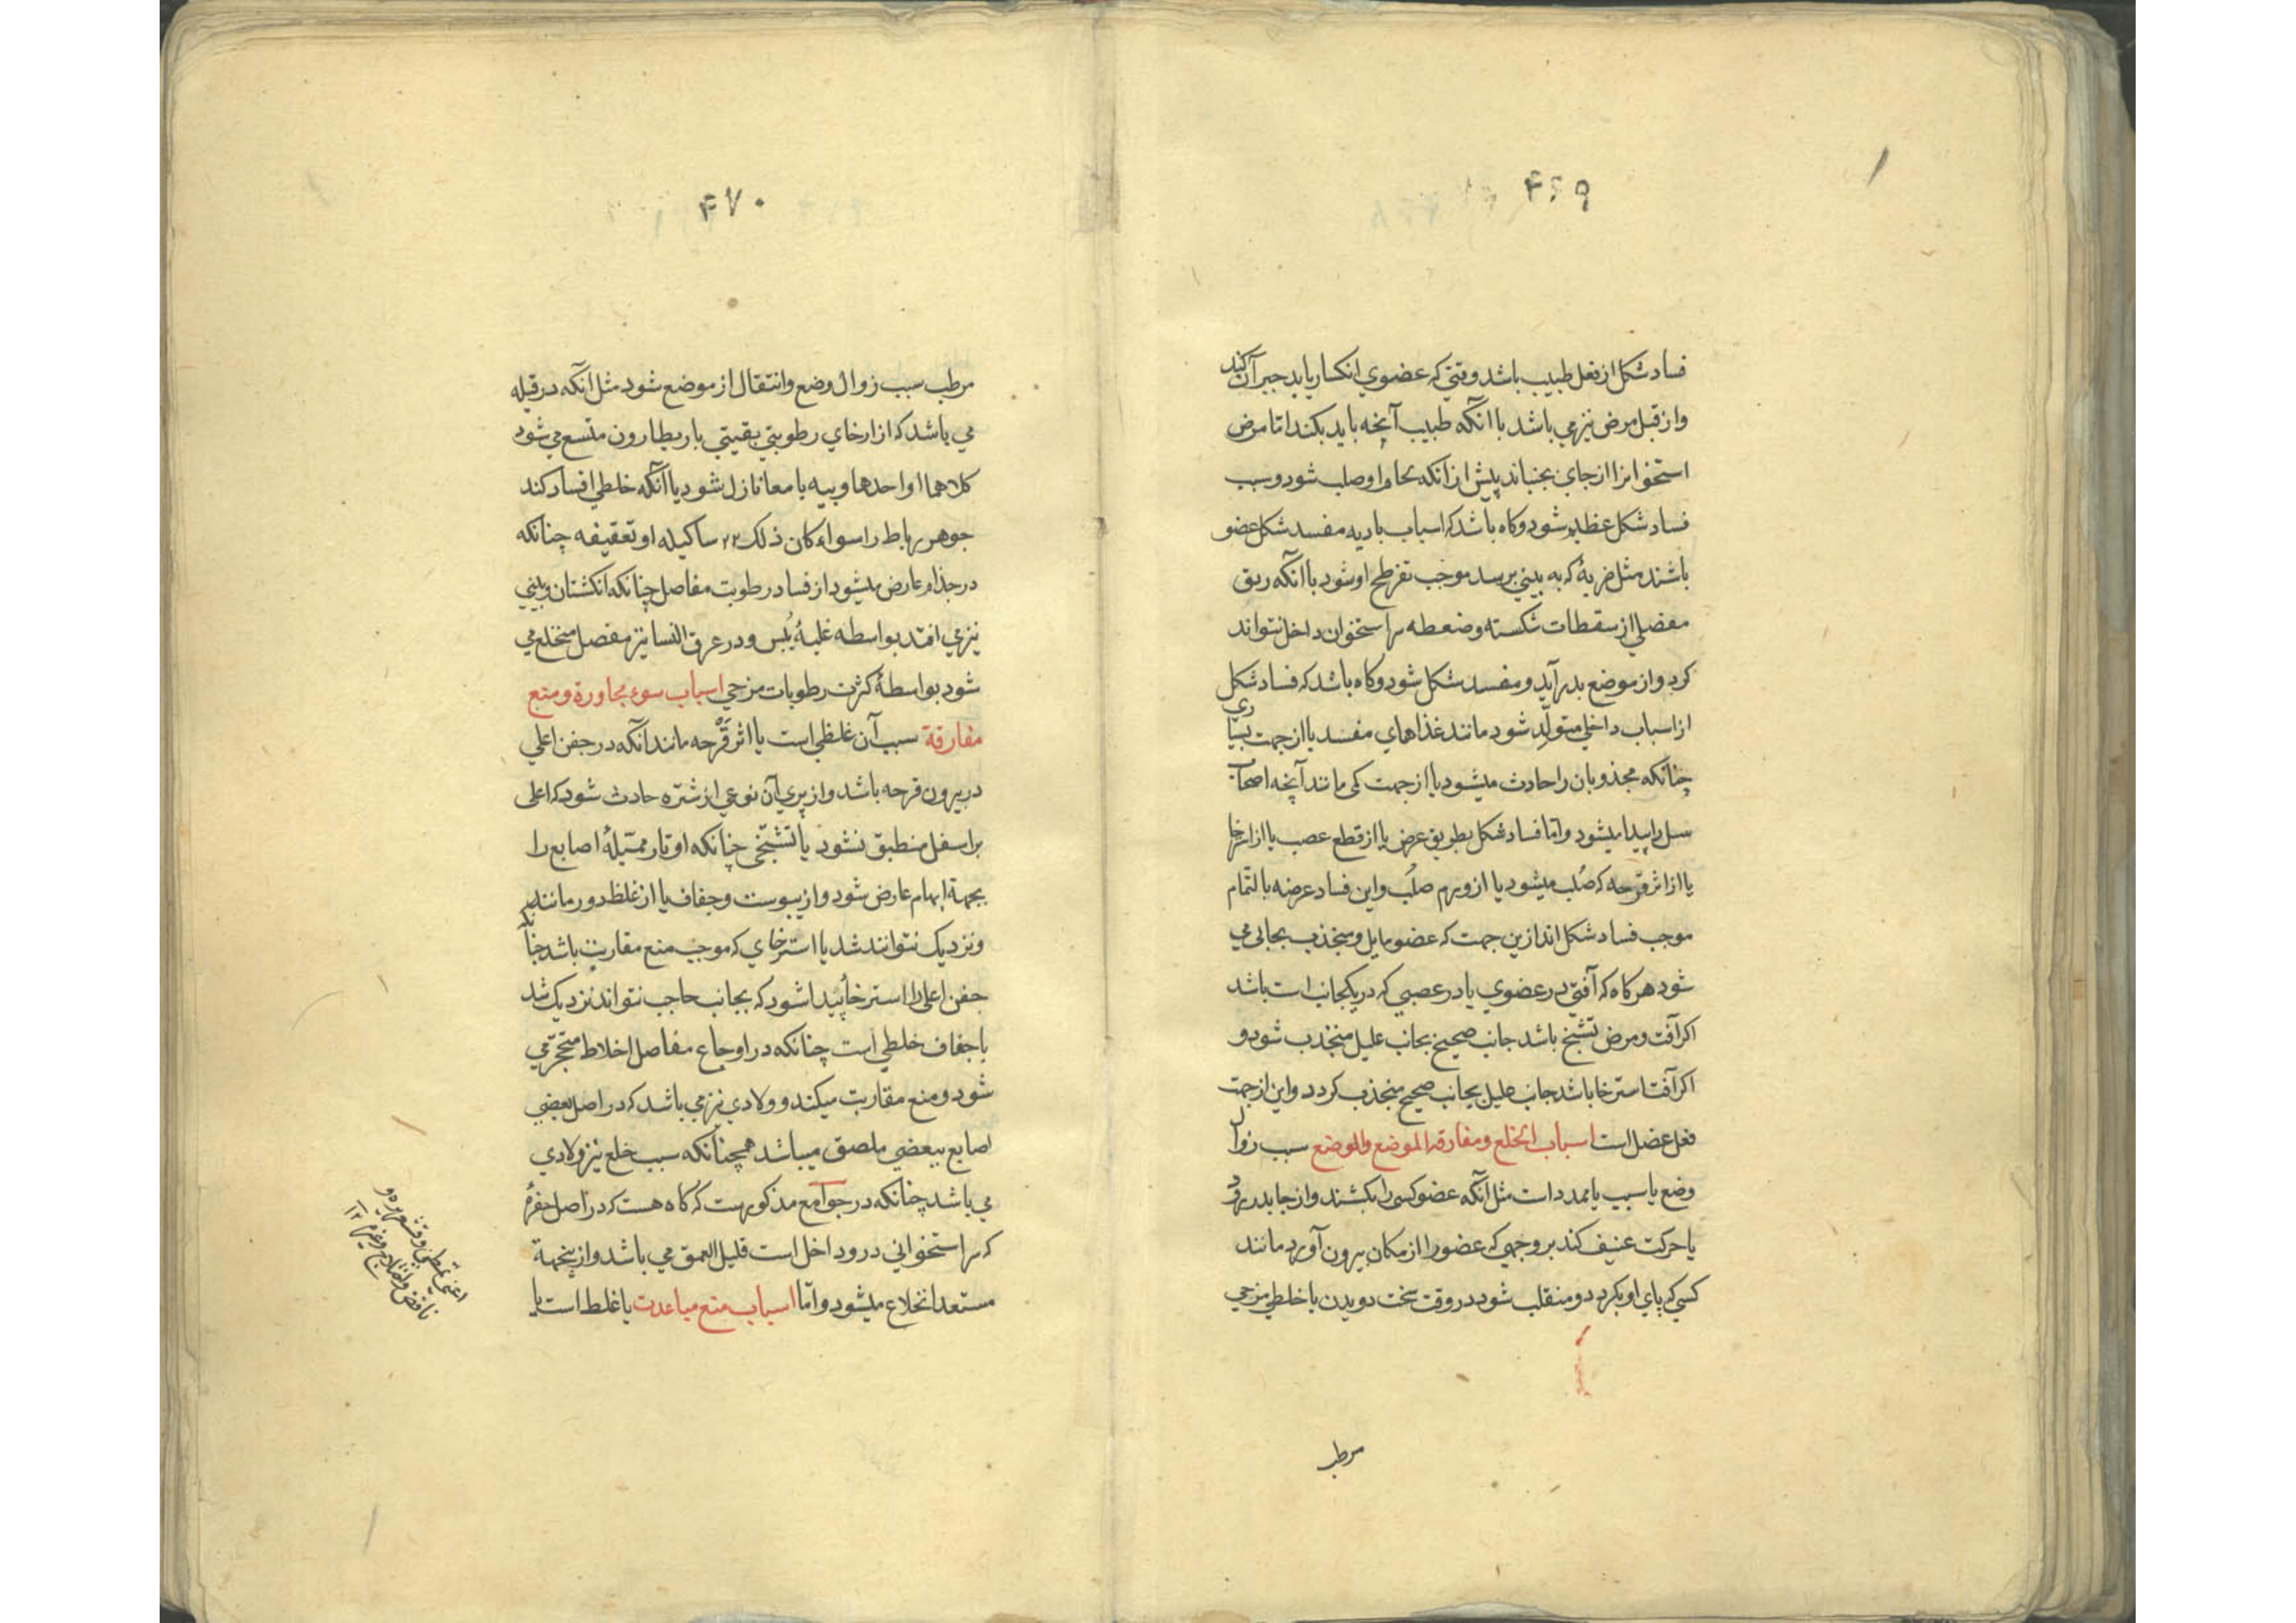 ۴۶۹
فساد شکل از فعل طبیب باشد وقتی که عضوی انکسار یابد جبر آن کند
واز قبل مرض نیز می باشد با آنکه طبیب آنچه باید بکند اما مرض
استخوانرا از جای بجنباند پیش از آنکه بحام او صلب شود و سبب
فساد شکل عظیم شود وکاه باشد که اسباب بادیه مفسد شکل عضو
باشند مثل ضربهٔ که به بینی برسد موجب تفرطح او شود یا آنکه ربق
مفصلی از سقطات شکسته وضعطه سر استخوان داخل نتواند
کرد واز موضع بدر آید و مفسد شکل شود وکاه باشد که فساد شکل
از اسباب داخلی متولّد شود مانند غذاهای مفسد یا از جهت بسیاری
چنانکه مجذوبان را حادث میشود یا از جهت کمی مانند آنچه اصحاب
سل را پیدا میشود واما فساد شکل بطریق عرض یا از قطع عصب یا از استرخا
یا از اثر قرحه که صُلب میشود یا از ورم صلُب واین فساد عرضه بالتمام
موجب فساد شکل اند ازین جهت که عضو مایل ومنجذب بجانبی می
شود هر کاه که آفتی در عضوی یا در عصبی که در یکجانب است باشد
اکر آفت ومرض تشنج باشد جانب صحیح بجانب علیل منجذب شود و
اکر آفت استرخا باشد جانب علیل بجانب صحیح منجذب کردد واین از جهت
فعل عضل است اسباب انخلع ومفارقه الموضع والوضع سبب زوال
وضع یا سبب یا ممدد است مثل آنکه عضو کسی را بکشند واز جا بدر رود
یا حرکت عنیف کند بر وجهی که عضو را از مکان بیرون آورد مانند
کسی که پای او بکردد و منقلب شود در وقت سخت دویدن یا خلطی مزجی
مرطب
۴۷۰
مرطب سبب زوال وضع وانتقال از موضع شود مثل آنکه در قیله
می باشد که از ارخای رطوبتی بقیتی باریطارون متسع می شود
کلاهما او احدهما وبیه یا معا نازل شود یا آنکه خلطی افساد کند
جوهر رباط را سواء کان ذلک ۲۲ ساکیله او تعقیفه چنانکه
در جذام عارض میشود از فساد رطوبت مفاصل چنانکه انکشتان وبینی
نیز می افتد بواسطه غلبهٔ یُبس ودر عرق النسا نیز مفصل منخلع می
شود بواسطهٔ کثرت رطوبات مزجی اسباب سوء مجاورة ومنع
مفارقة سبب آن غلظی است یا اثر قرحه مانند آنکه در جفن اعلی
در بیرون قرحه باشد واز پری آن نوعی از شتره حادث شود که اعلی
بر اسفل منطبق نشود یا تشنّجی چنانکه اوتار ممتیلهٔ اصابع را
بجهة ابهام عارض شود واز یبوست وجفاف یا از غلظ دور مانند
ونزدیک نتوانند شد یا استرخای که موجب منع مقاربت باشد چنانکه
جفن اعلی را استرخا پیدا شود که بجانب حاجب نتواند نزدیک شد
یا جفاف خلطی است چنانکه در اوجاع مفاصل اخلاط متحجر می
شود ومنع مقاربت میکند و ولادی نیز می باشد که در اصل بعضی
اصابع ببعضی ملصق میباشد همچنانکه سبب خلع نیز ولادی
می باشد چنانکه در جوامع مذکورست که کاه هست که در اصل حفرهٔ
که سر استخوانی درو داخل است قلیل العمق می باشد واز ینجهة
مستعد انخلاع میشود واما اسباب منع مباعدت یا غلظ است یا